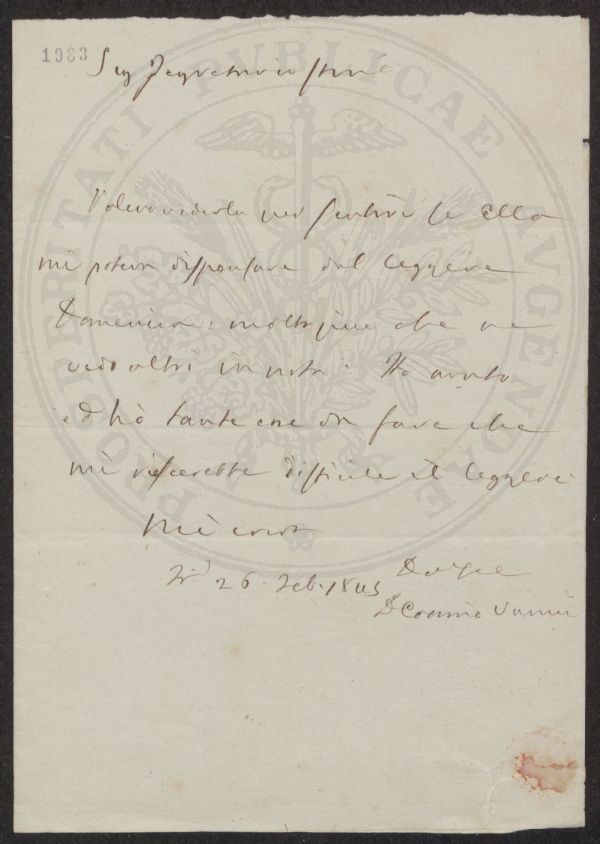 1983
Sig Segretario stimo
Volevo vederla per sentire se Ella
mi poteva dispensare dal leggere
Domenica: molto più che ne
vedo altri in nota. Ho avuto
ed hò tante cose da fare che
mi riescerebbe difficile il leggere.
Mi creda
26. Feb. 1845
D Cosimo Vanni
PROSPERITATI PUBLICAE AVGENDAE